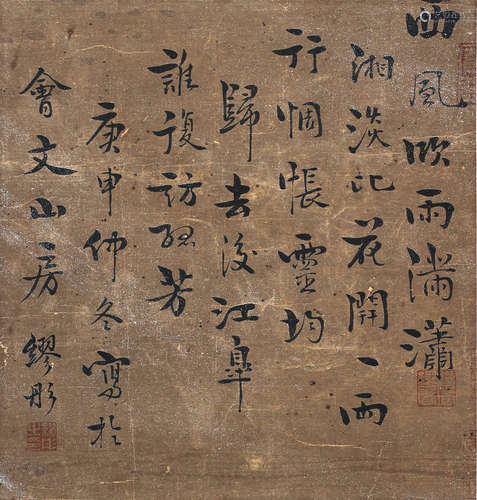 西風吹雨滿瀟
湘淡比花開一兩
行惆悵靈均
歸去後江皋
誰復訪孤芳
庚申仲冬寫於
會文山房 繆彤